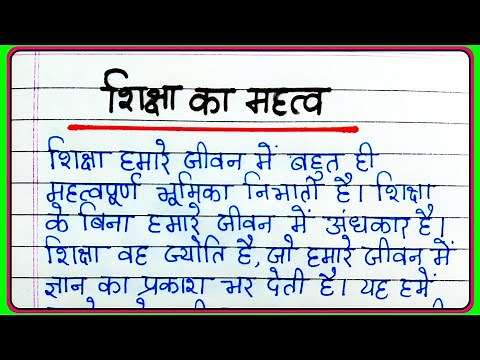 शिक्षा का महत्व
शिक्षा हमारे जीवन में बहुत ही
महत्वपूर्ण भूमिका निभाती है। शिक्षा
के बिना हमारे जीवन में अंधकार है।
शिक्षा वह ज्योति है, जो हमारे जीवन में
ज्ञान का प्रकाश भर देती है। यह हमें